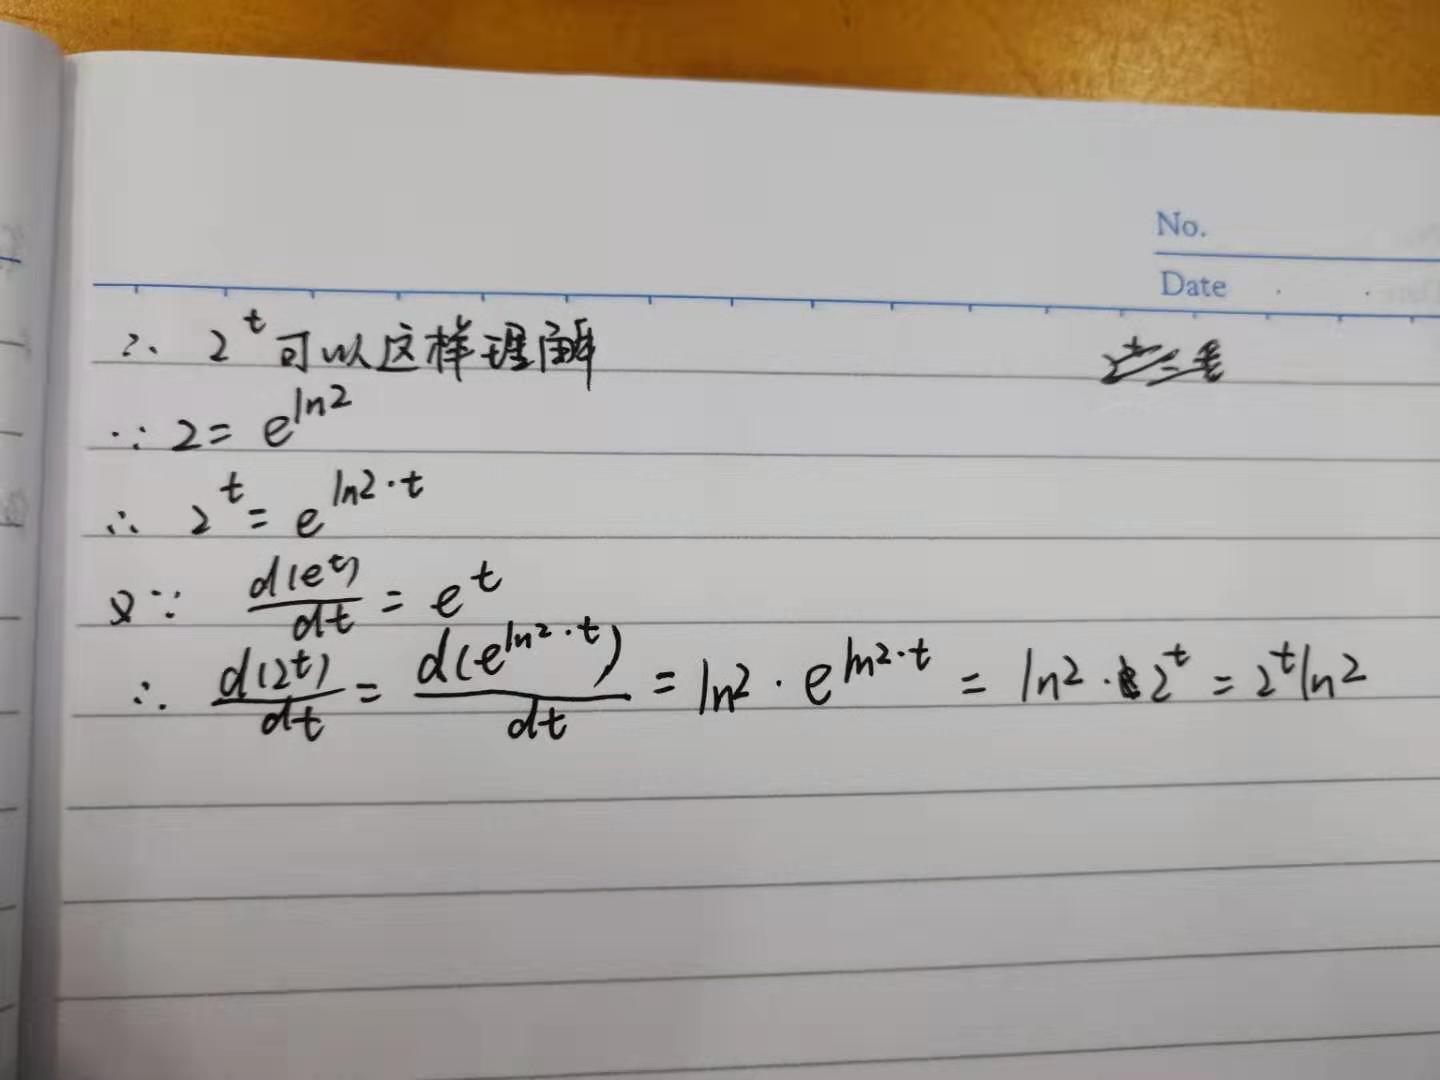 No.
Date
∴ 2^t 可以这样理解
∵ 2 = e^{ln2}
∴ 2^t = e^{ln2·t}
又∵ d(e^t)/dt = e^t
∴ d(2^t)/dt = d(e^{ln2·t})/dt = ln2 · e^{ln2·t} = ln2 · 2^t = 2^t ln2